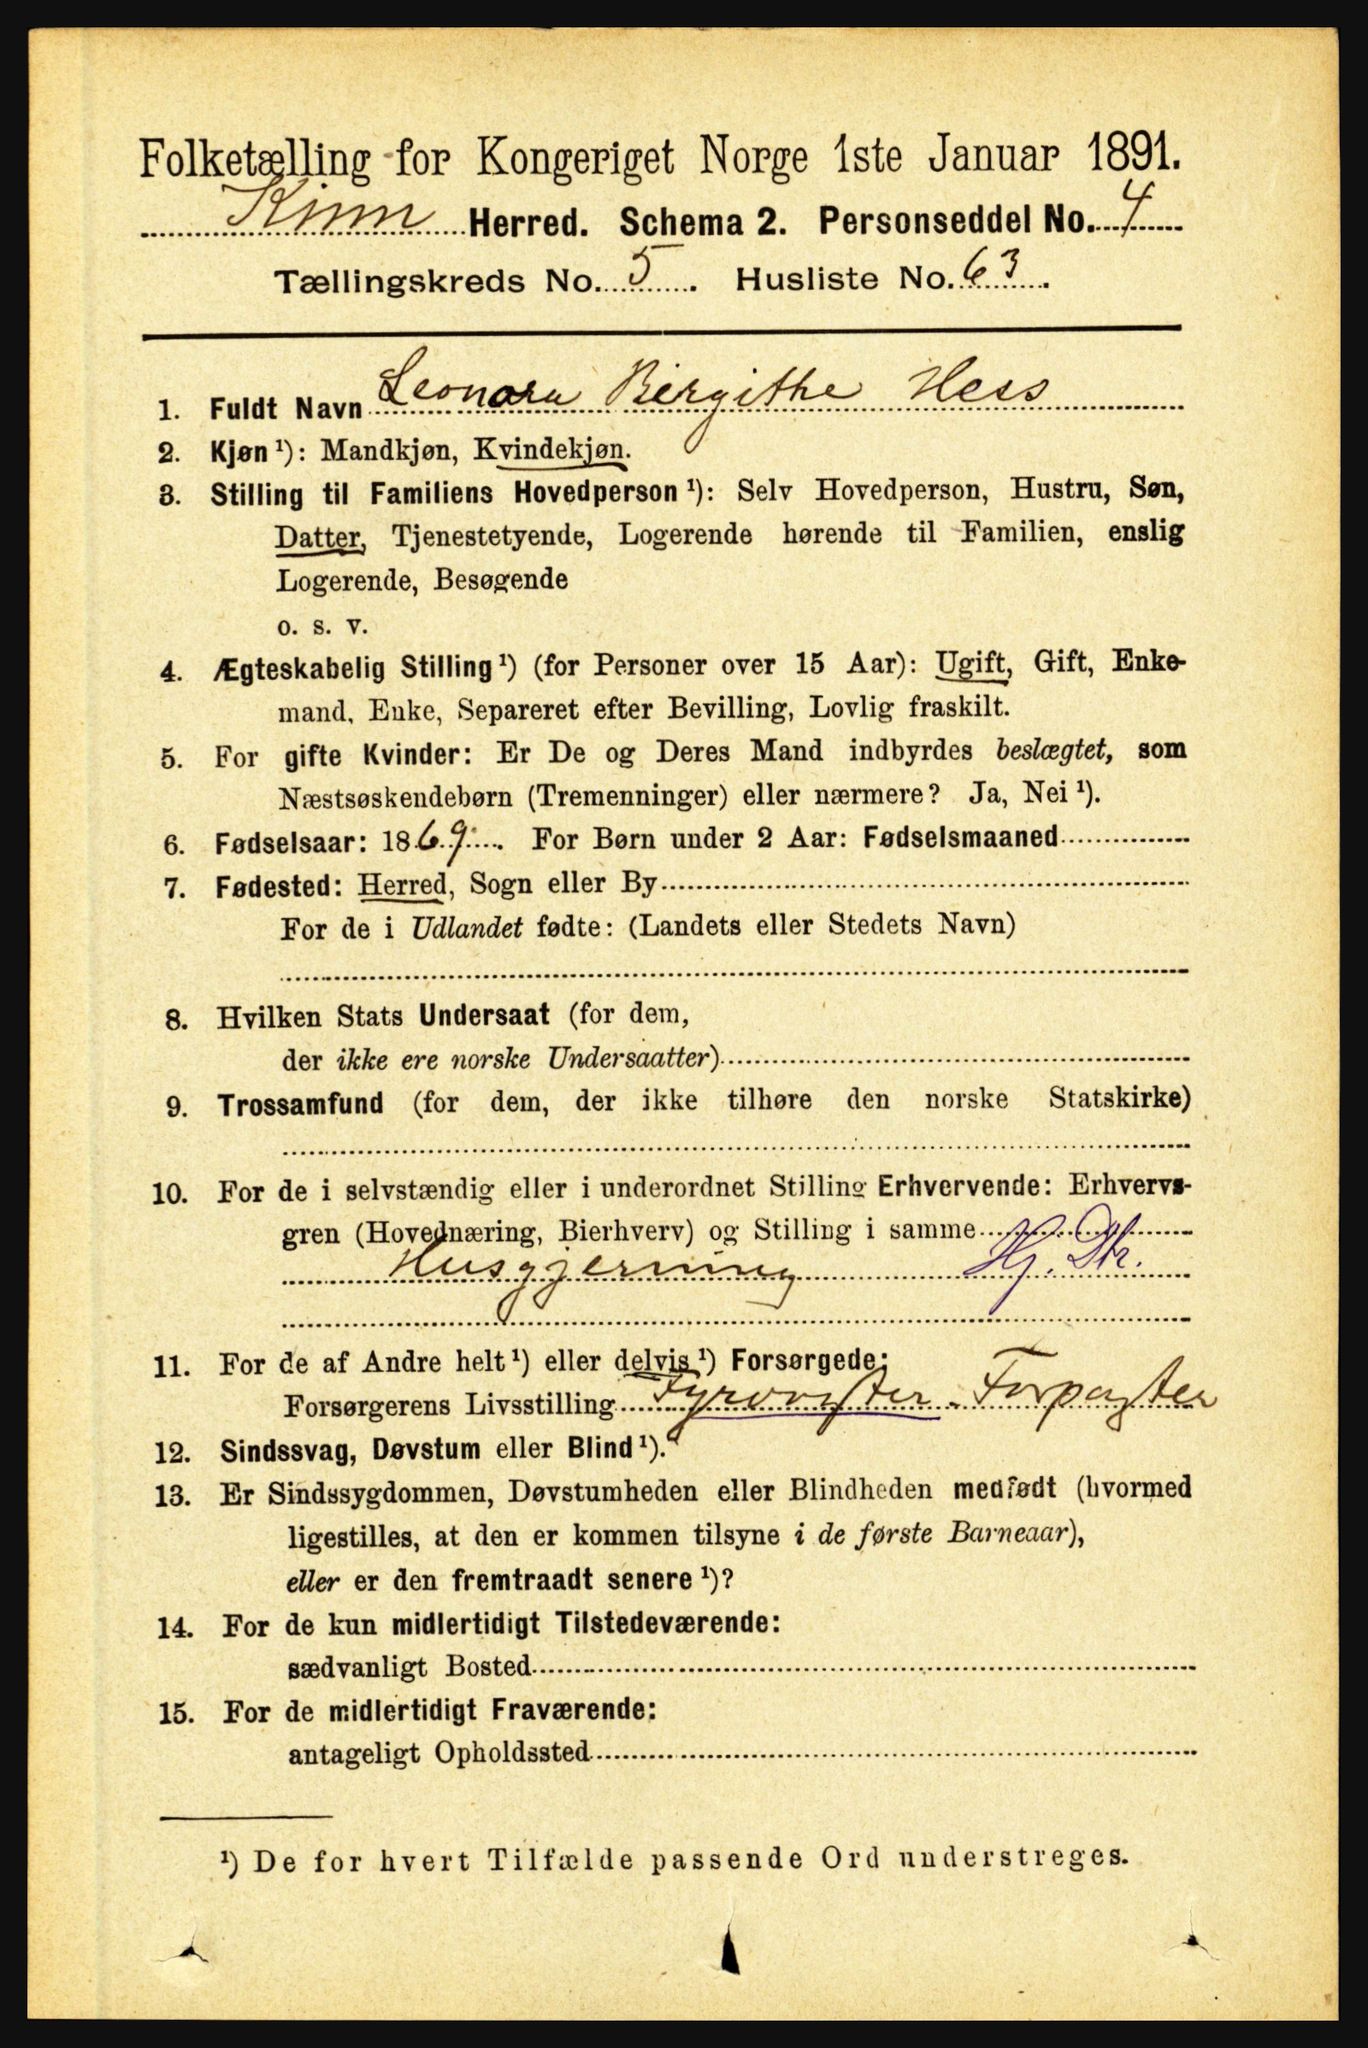 Folketælling for Kongeriget Norge 1ste Januar 1891.
Kinn Herred. Schema 2. Personseddel No. 4
Tællingskreds No. 5. Husliste No. 63.
1. Fuldt Navn Leonora Birgithe Hess
2. Kjøn ¹): Mandkjøn, Kvindekjøn.
3. Stilling til Familiens Hovedperson ¹): Selv Hovedperson, Hustru, Søn,
Datter, Tjenestetyende, Logerende hørende til Familien, enslig
Logerende, Besøgende
o. s. v.
4. Ægteskabelig Stilling ¹) (for Personer over 15 Aar): Ugift, Gift, Enke-
mand, Enke, Separeret efter Bevilling, Lovlig fraskilt.
5. For gifte Kvinder: Er De og Deres Mand indbyrdes beslægtet, som
Næstsøskendebørn (Tremenninger) eller nærmere? Ja, Nei ¹).
6. Fødselsaar: 1869. For Børn under 2 Aar: Fødselsmaaned
7. Fødested: Herred, Sogn eller By
For de i Udlandet fødte: (Landets eller Stedets Navn)
8. Hvilken Stats Undersaat (for dem,
der ikke ere norske Undersaatter)
9. Trossamfund (for dem, der ikke tilhøre den norske Statskirke)
10. For de i selvstændig eller i underordnet Stilling Erhvervende: Erhvervs-
gren (Hovednæring, Bierhverv) og Stilling i samme
Husgjerning Hj. Dtr.
11. For de af Andre helt ¹) eller delvis ¹) Forsørgede:
Forsørgerens Livsstilling Fyrvogter. Forpagter
12. Sindssvag, Døvstum eller Blind ¹).
13. Er Sindssygdommen, Døvstumheden eller Blindheden medfødt (hvormed
ligestilles, at den er kommen tilsyne i de første Barneaar),
eller er den fremtraadt senere ¹)?
14. For de kun midlertidigt Tilstedeværende:
sædvanligt Bosted
15. For de midlertidigt Fraværende:
antageligt Opholdssted
¹) De for hvert Tilfælde passende Ord understreges.